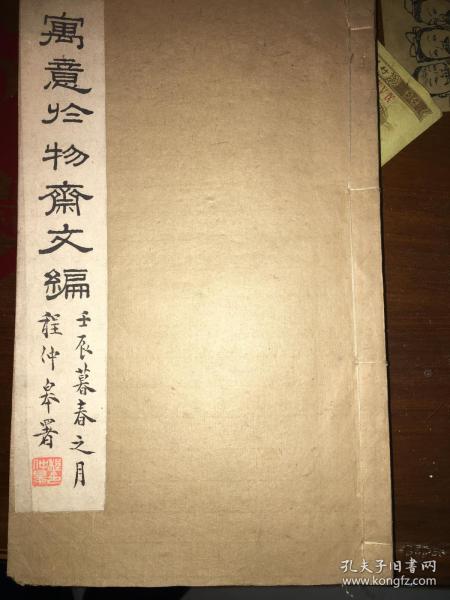 寓意於物齋文編
壬辰暮春之月
程仲皋署
孔夫子旧书网
www.kongfz.com